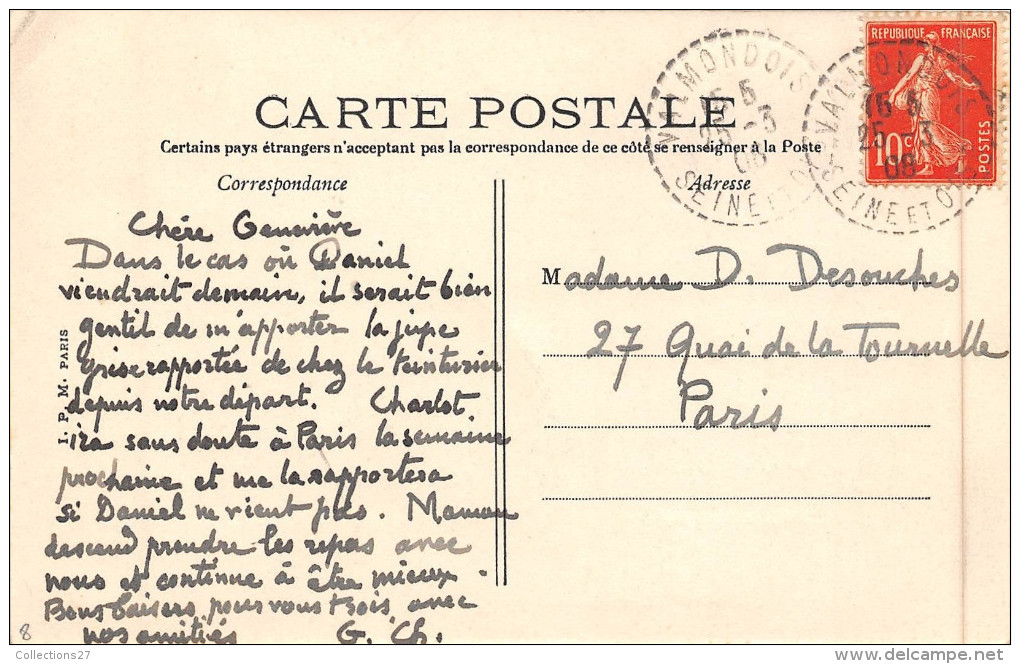 RÉPUBLIQUE FRANÇAISE
10c
POSTES
VALMONDOIS
5
25 -3
08
SEINE ET O
VALMONDOIS
15 5
25 -3
08
SEINE ET O
CARTE POSTALE
Certains pays étrangers n'acceptant pas la correspondance de ce côté se renseigner à la Poste
Correspondance
Chère Geneviève
Dans le cas où Daniel
viendrait demain, il serait bien
gentil de m'apporter la jupe
grise rapportée de chez le teinturier
depuis notre départ. Charlot
ira sans doute à Paris la semaine
prochaine et me la rapportera
si Daniel ne vient pas. Maman
descend prendre les repas avec
nous et continue à être mieux.
Bons baisers pour vous trois avec
nos amitiés G. Ch.
I. P. M. PARIS
Adresse
Madame D. Desouches
27 Quai de la Tournelle
Paris
8
Collections27
delcampe.net